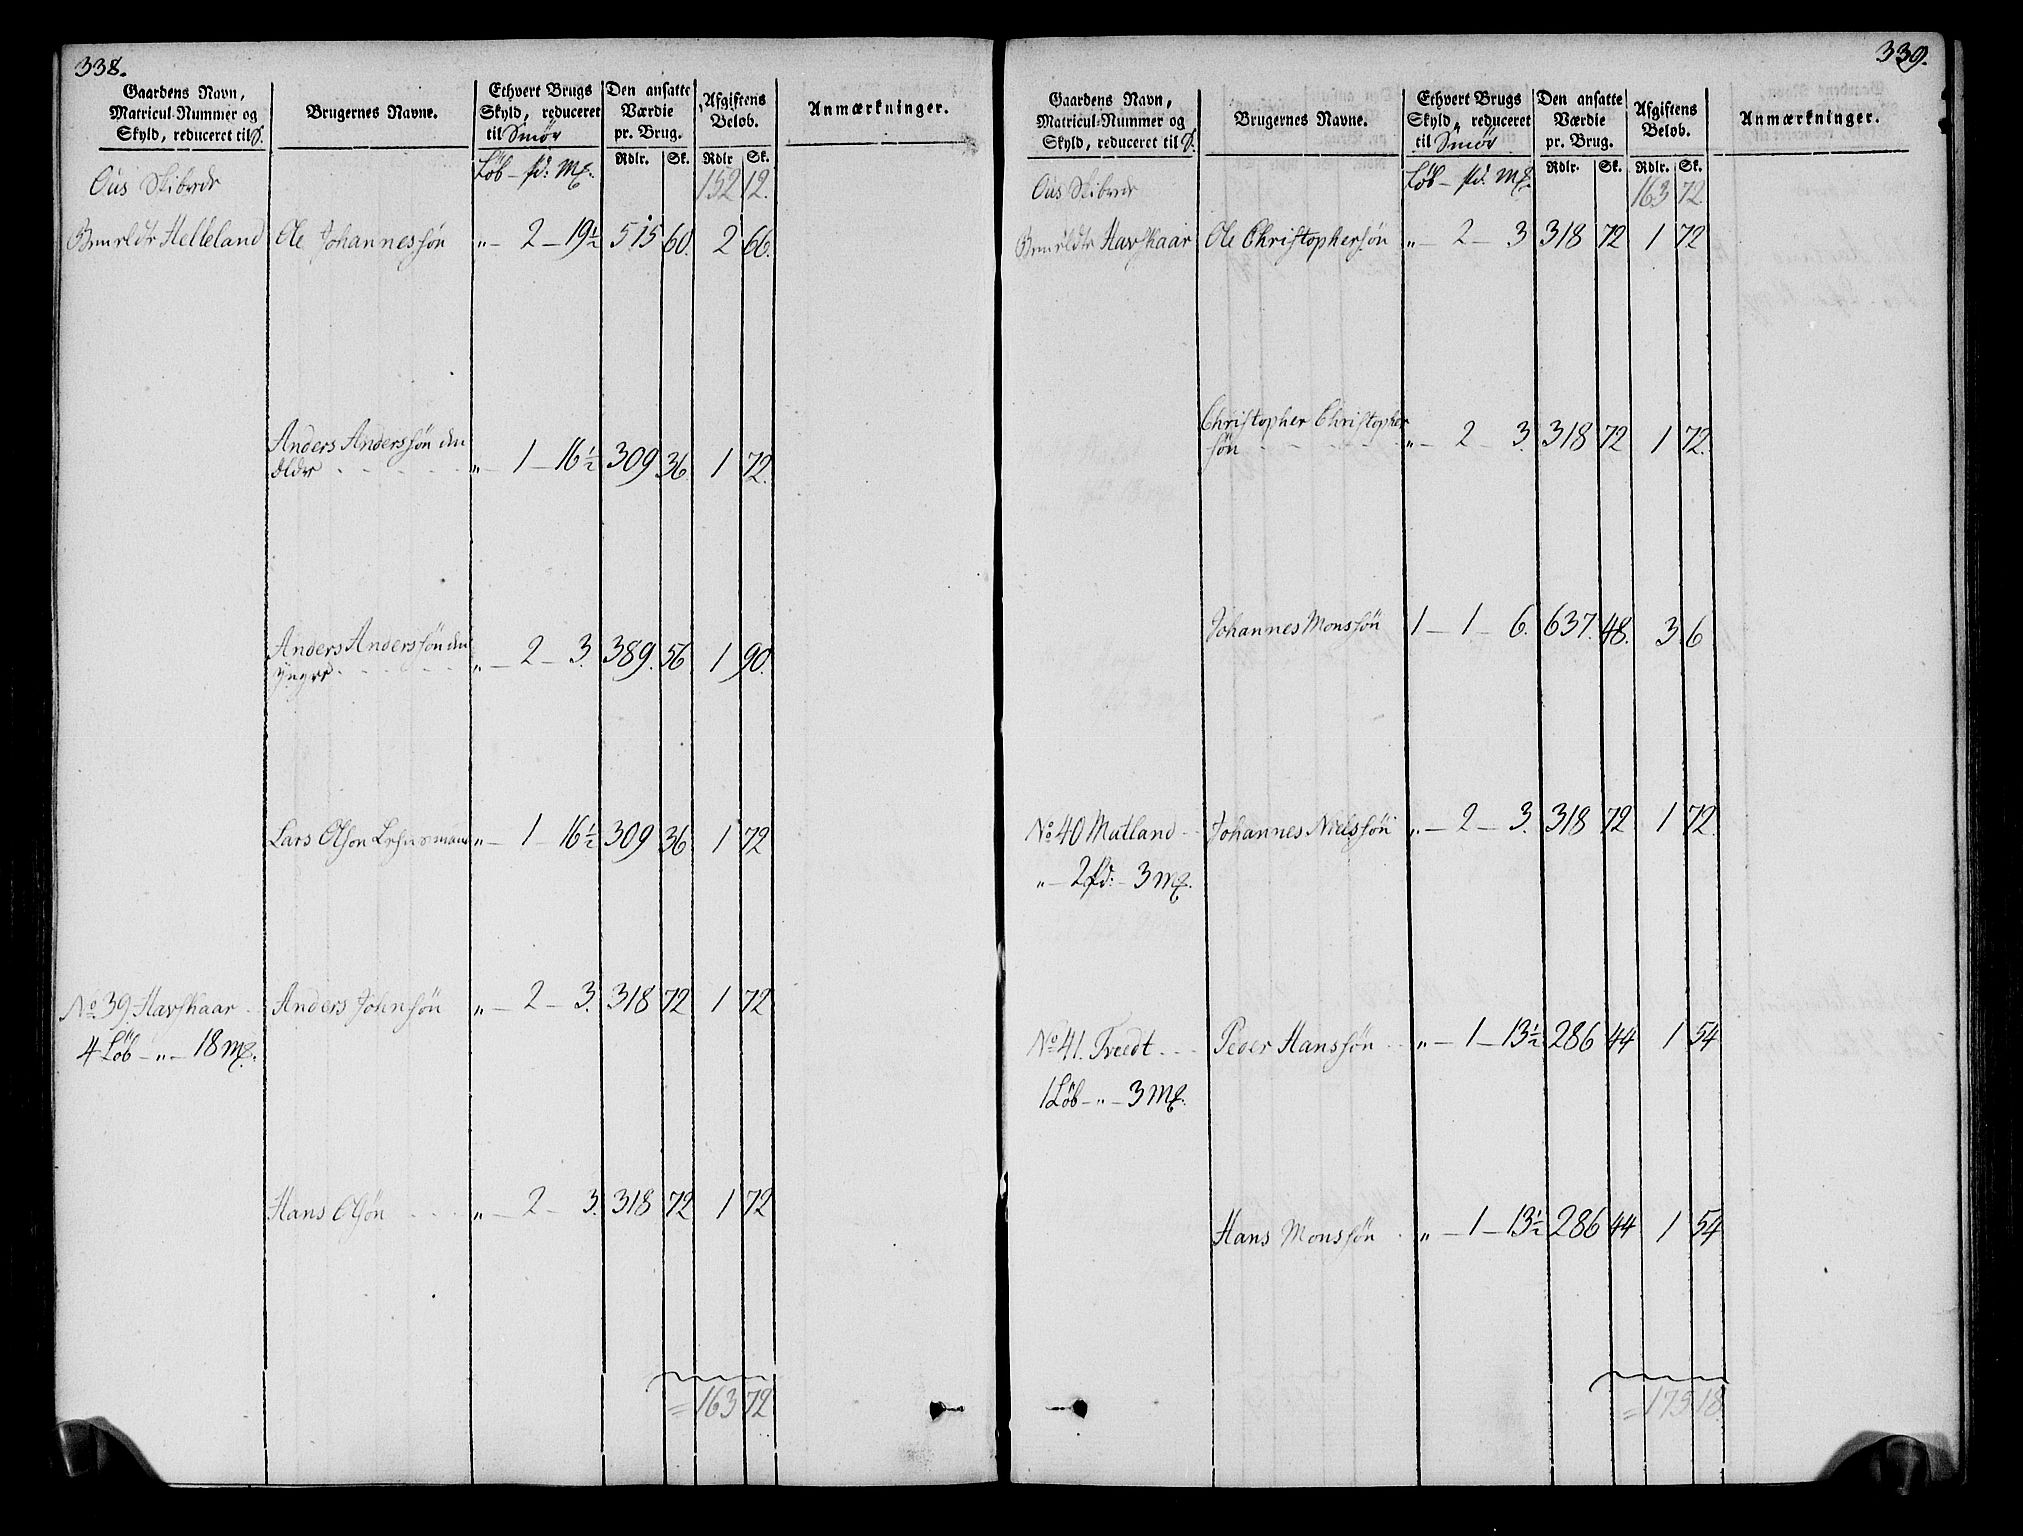 338.
Gaardens Navn,
Matricul-Nummer og
Skyld, reduceret til
Brugernes Navne.
Ethvert Brugs
Skyld, reduceret
til Smör
Den ansatte
Værdie
pr. Brug.
Afgiftens
Beløb.
Anmærkninger.
Rdlr. Sk. Rdlr Sk.
Ous Skibrede
Löb - pd: mk.
152 12.
Helleland Ole Johannessøn „ - 2 - 19½ 515 60. 2 66.
Anders Anderssøn den
Eldre „ - 1 - 16½ 309 36. 1 72.
Anders Anderssøn den
Yngre „ - 2 - 3. 389. 56 1 90.
Lars Olson Lehnsmand „ - 1 - 16½ 309 36 1 72
No 39. Havskaar Anders Johnsøn „ - 2 - 3. 318 72 1 72
4 Löb - „ - 18 mk.
Hans Olsøn „ - 2 - 3. 318 72 1 72
= 163 72
339.
Gaardens Navn,
Matricul-Nummer og
Skyld, reduceret til
Brugernes Navne.
Ethvert Brugs
Skyld, reduceret
til Smör
Den ansatte
Værdie
pr. Brug.
Afgiftens
Beløb.
Anmærkninger.
Rdlr. Sk. Rdlr. Sk.
Ous Skibrede
Löb - pd: mk.
163 72
Havskaar Ole Christophersøn „ - 2 - 3 318 72 1 72
Christopher Christopher
søn „ - 2 - 3. 318 72 1 72.
Johannes Monssøn 1 - 1 - 6. 637. 48. 3 6
No 40 Mutland Johannes Nielssøn „ - 2 - 3. 318 72 1 72
„ - 2 pd: - 3 mk.
No 41. Tvedt Peder Hanssøn „ - 1 - 13½ 286 44 1 54
1 Löb - „ - 3 mk.
Hans Monssøn „ - 1 - 13½ 286 44 1 54
= 175 18.